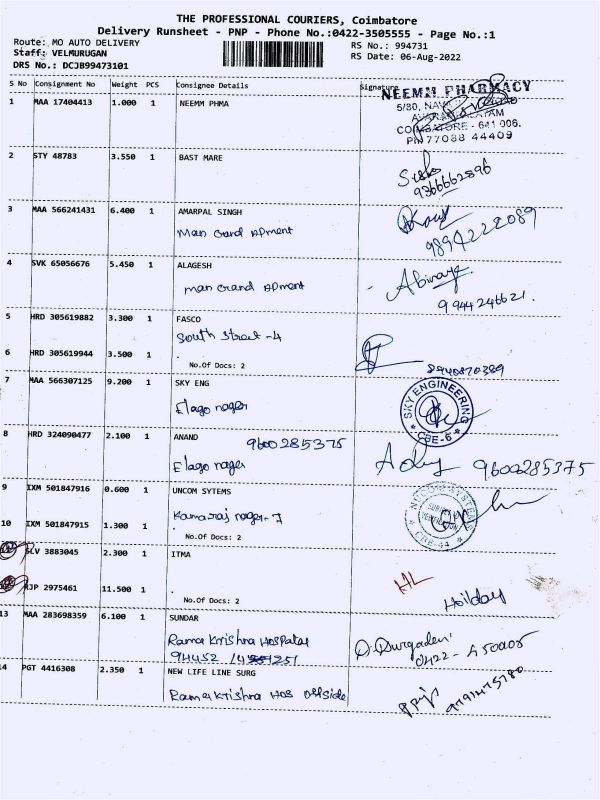 THE PROFESSIONAL COURIERS, Coimbatore
Delivery Runsheet - PNP - Phone No.:0422-3505555 - Page No.:1
Route: MO AUTO DELIVERY
RS No.: 994731
Staff: VELMURUGAN
RS Date: 06-Aug-2022
DRS No.: DCJB99473101
S No Consignment No Weight PCS Consignee Details Signature
NEEMM PHARMACY
1 MAA 17404413 1.000 1 NEEMM PHMA
5/80,
COIMBATORE - 641 006.
PH 77088 44409
2 STY 48783 3.550 1 BAST MARE
9366662896
3 MAA 566241431 6.400 1 AMARPAL SINGH
Man Grand APment
9894222089
4 SVK 65056676 5.450 1 ALAGESH
man Grand APment
Abinaya
9944246621.
5 HRD 305619882 3.300 1 FASCO
South Street -4
6 HRD 305619944 3.500 1 .
No.Of Docs: 2
8940870389
7 MAA 566307125 9.200 1 SKY ENG
Elago nager
SKY ENGINEERING
CBE-6
8 HRD 324090477 2.100 1 ANAND
9600285375
Elago nager
9600285375
9 IXM 501847916 0.600 1 UNCOM SYTEMS
Kamaraj nager-7
10 IXM 501847915 1.300 1
No.Of Docs: 2
SLV 3883045 2.300 1 ITMA
HL
RJP 2975461 11.500 1 .
No.Of Docs: 2
Holiday
13 MAA 283698359 6.100 1 SUNDAR
Rama Krishna Hospatal
D. Durgadevi
0422 - 450005
14 PGT 4416308 2.350 1 NEW LIFE LINE SURG
Ramakrishna Hos offside